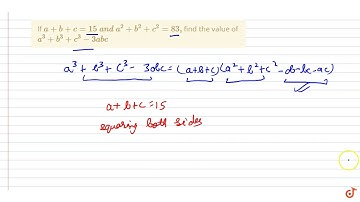 If a + b + c = 15 and a² + b² + c² = 83, find the value of
a³ + b³ + c³ − 3abc
a³ + b³ + c³ − 3abc = (a+b+c)(a²+b²+c² −ab−bc−ac)
a+b+c = 15
squaring both sides